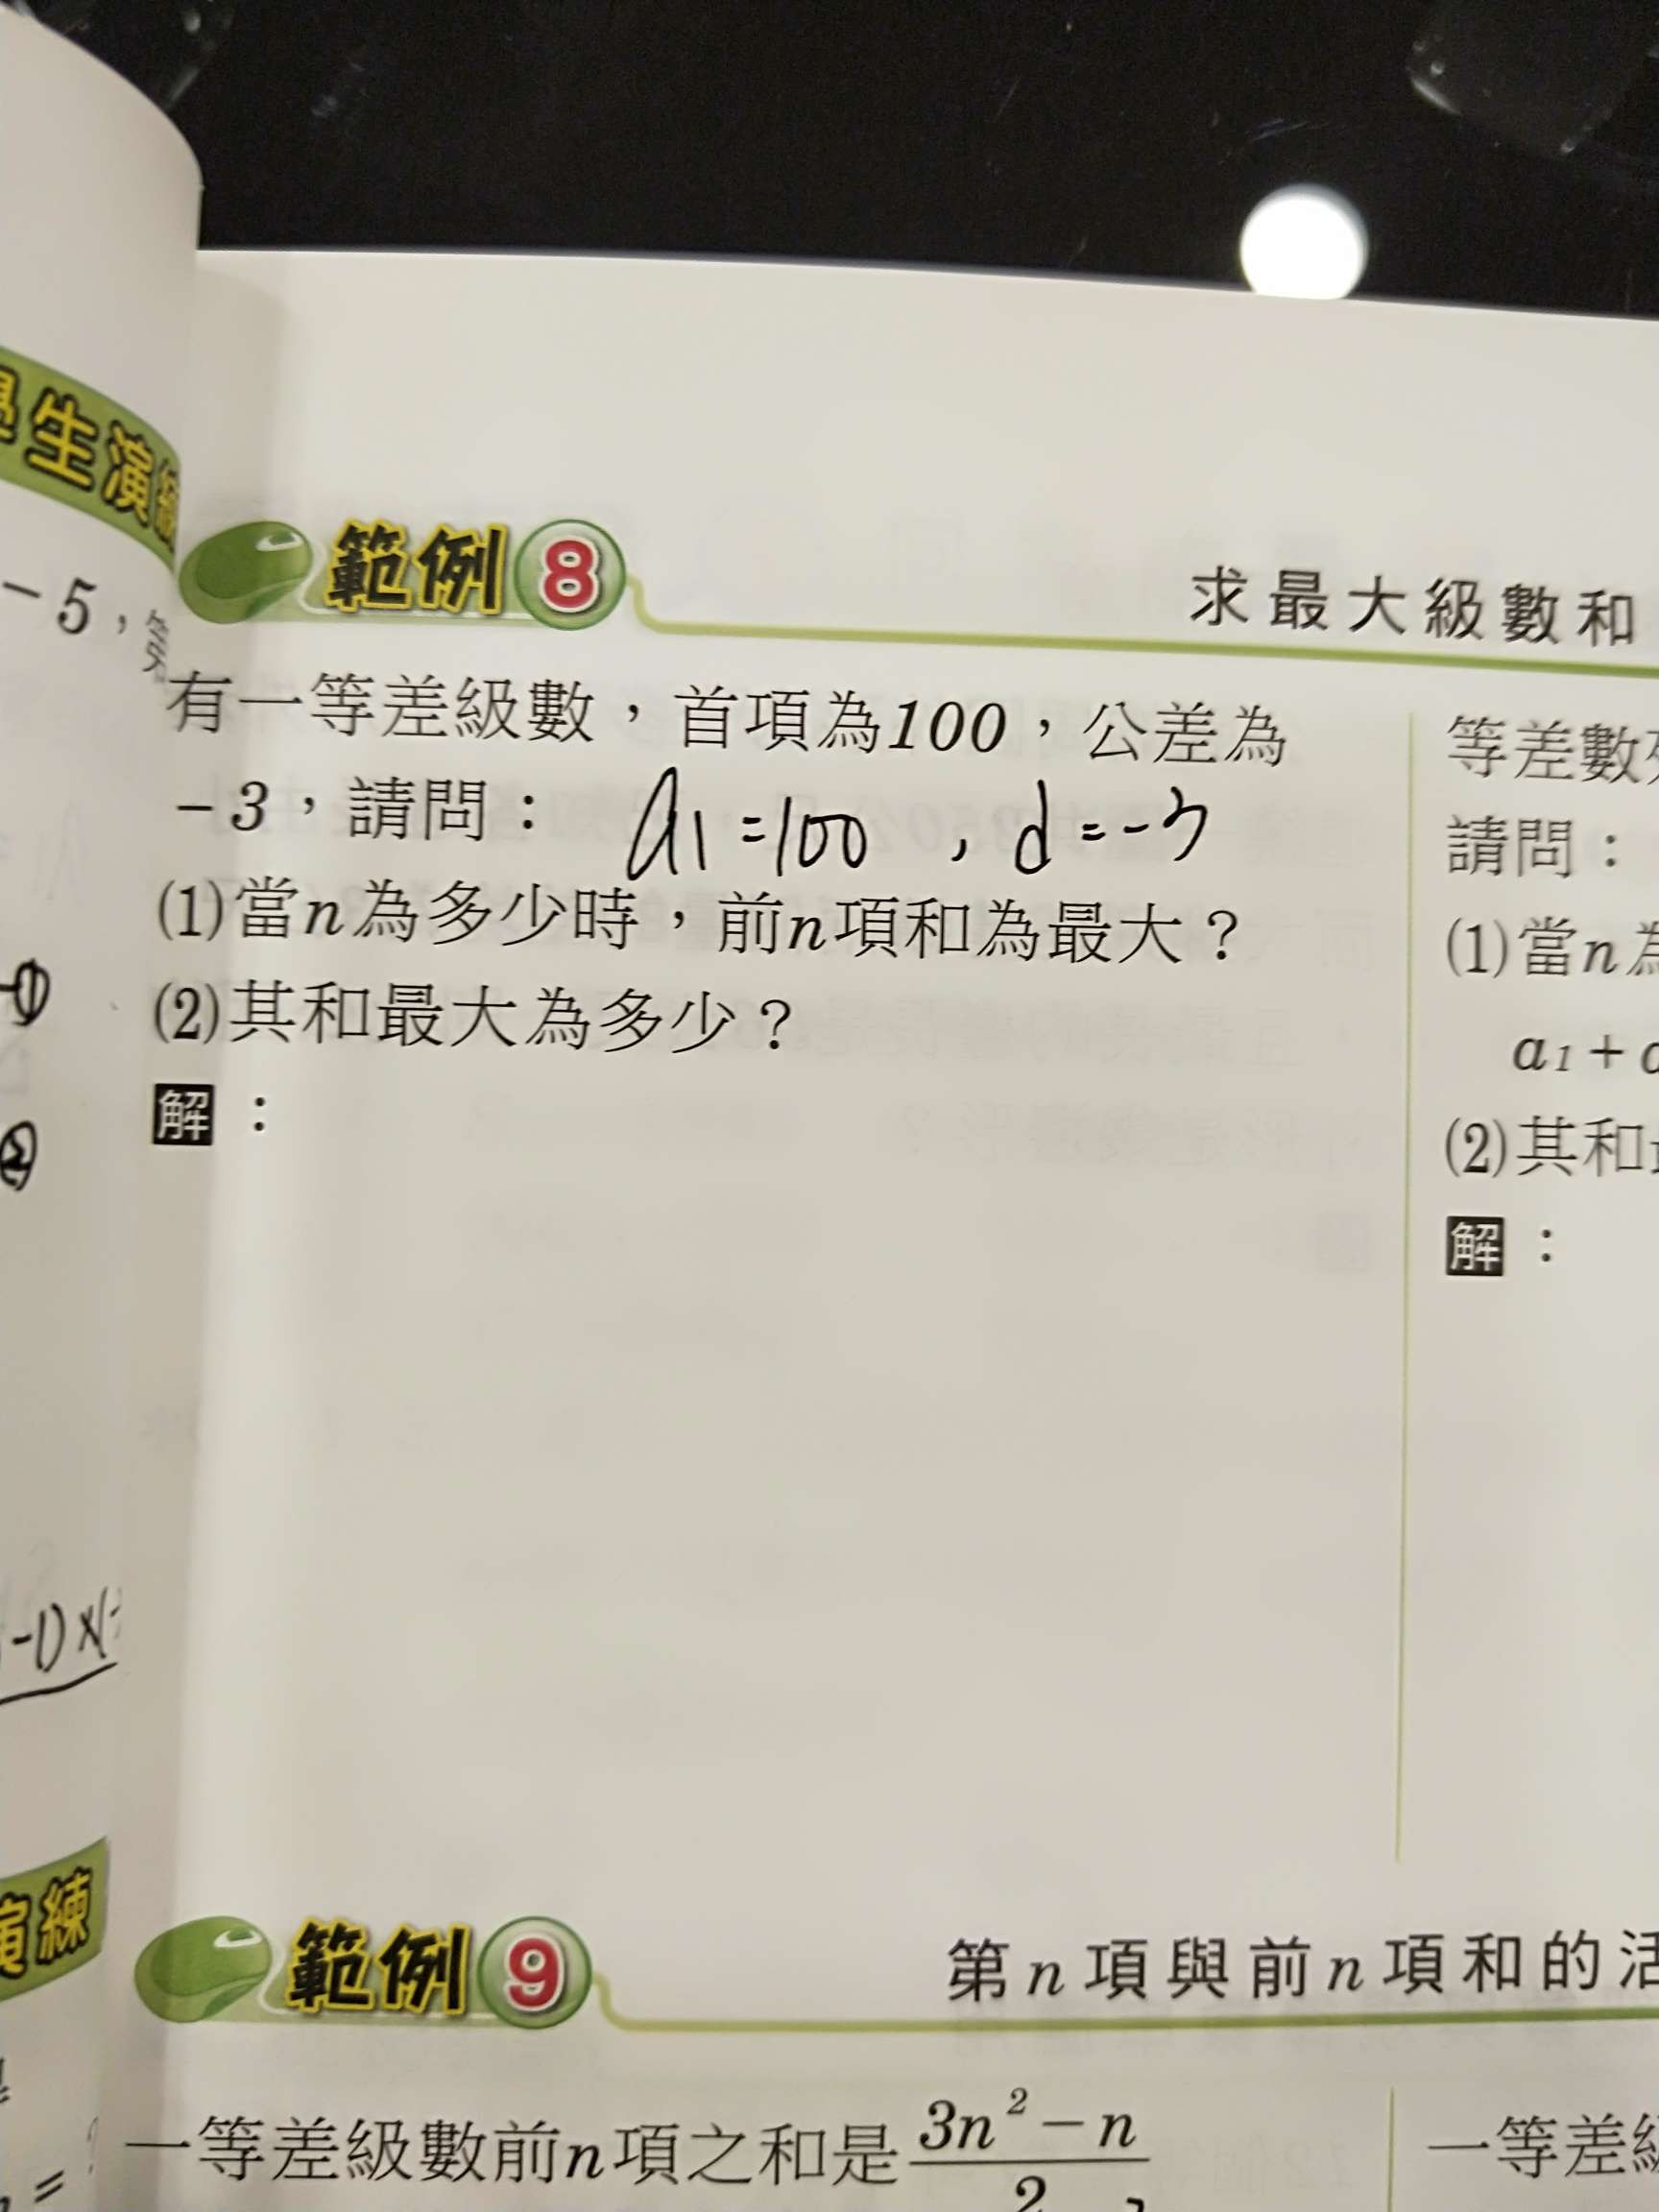 學生演練
-5，第
範例8
求最大級數和
有一等差級數，首項為100，公差為
-3，請問： a1=100 , d=-3
(1)當n為多少時，前n項和為最大？
(2)其和最大為多少？
解：
等差數列
請問：
(1)當n為
a1+
(2)其和最
解：
①
②
-1)×(-
演練
範例9
第n項與前n項和的活
一等差級數前n項之和是 3n²-n
2
一等差級
=